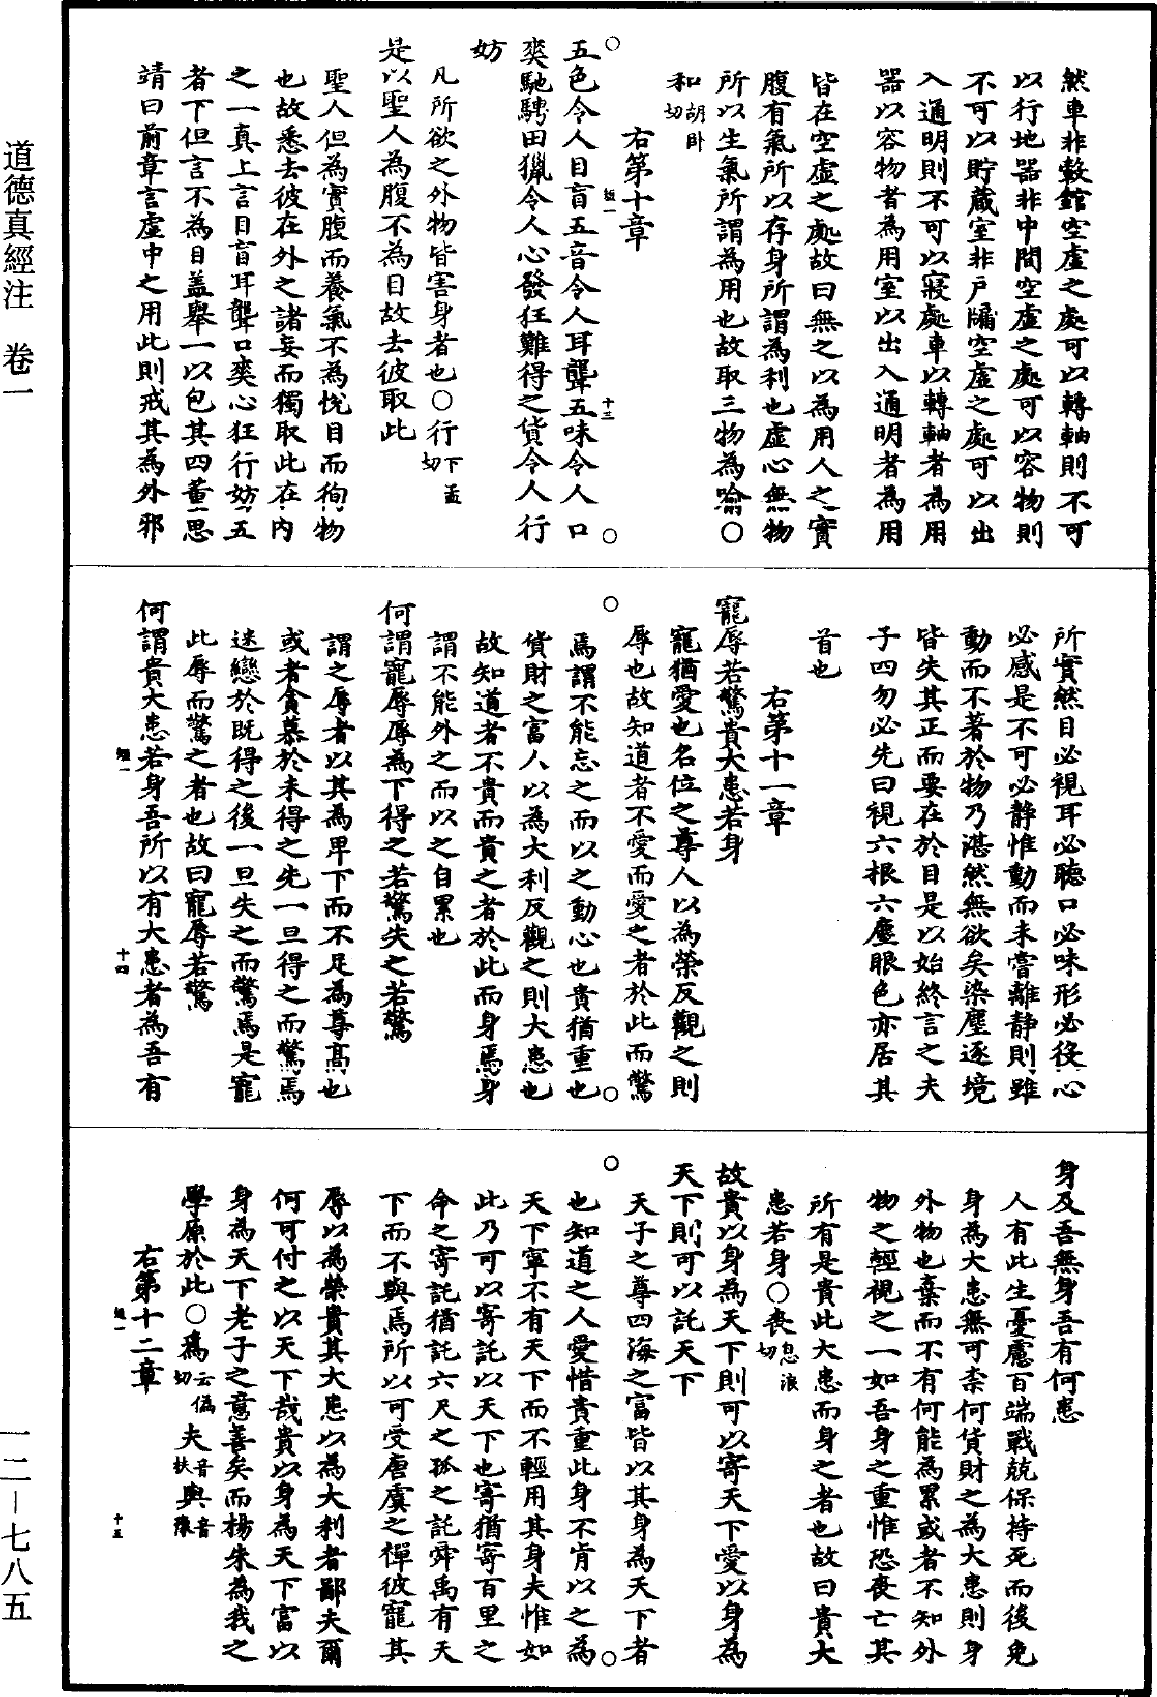 然車非轂錧空虛之處可以轉軸則不可
以行地器非中間空虛之處可以容物則
不可以貯藏室非戶牖空虛之處可以出
入通明則不可以寢處車以轉軸者為用
器以容物者為用室以出入通明者為用
皆在空虛之處故曰無之以為用人之實
腹有氣所以存身所謂為利也虛心無物
所以生氣所謂為用也故取三物為喻○
和胡卧切
右第十章
五色令人目盲五音令人耳聾五味令人口
爽馳騁田獵令人心發狂難得之貨令人行
妨
凡所欲之外物皆害身者也○行下孟切
是以聖人為腹不為目故去彼取此
聖人但為實腹而養氣不為悅目而徇物
也故悉去彼在外之諸妄而獨取此在內
之一真上言目盲耳聾口爽心狂行妨五
者下但言不為目蓋舉一以包其四董思
靖曰前章言虛中之用此則戒其為外邪
所實然目必視耳必聽口必味形必役心
必感是不可必靜惟動而未嘗離靜則雖
動而不著於物乃湛然無欲矣染塵逐境
皆失其正而要在於目是以始終言之夫
子四勿必先曰視六根六塵眼色亦居其
首也
右第十一章
寵辱若驚貴大患若身
寵猶愛也名位之尊人以為榮反觀之則
辱也故知道者不愛而愛之者於此而驚
焉謂不能忘之而以之動心也貴猶重也
貨財之富人以為大利反觀之則大患也
故知道者不貴而貴之者於此而身焉身
謂不能外之而以之自累也
何謂寵辱辱為下得之若驚失之若驚
謂之辱者以其為卑下而不足為尊高也
或者貪慕於未得之先一旦得之而驚焉
迷戀於既得之後一旦失之而驚焉是寵
此辱而驚之者也故曰寵辱若驚
何謂貴大患若身吾所以有大患者為吾有
身及吾無身吾有何患
人有此生憂慮百端戰兢保持死而後免
身為大患無可柰何貨財之為大患則身
外物也棄而不有何能為累或者不知外
物之輕視之一如吾身之重惟恐喪亡其
所有是貴此大患而身之者也故曰貴大
患若身○喪息浪切
故貴以身為天下則可以寄天下愛以身為
天下則可以託天下
天子之尊四海之富皆以其身為天下者
也知道之人愛惜貴重此身不肯以之為
天下寧不有天下而不輕用其身夫惟如
此乃可以寄託以天下也寄猶寄百里之
命之寄託猶託六尺之孤之託舜禹有天
下而不與焉所以可受唐虞之禪彼寵其
辱以為榮貴其大患以為大利者鄙夫爾
何可付之以天下哉貴以身為天下富以
身為天下老子之意善矣而楊朱為我之
學原於此○為云偽切夫音扶與音豫
右第十二章
道德真經注 卷一
一二－七八五